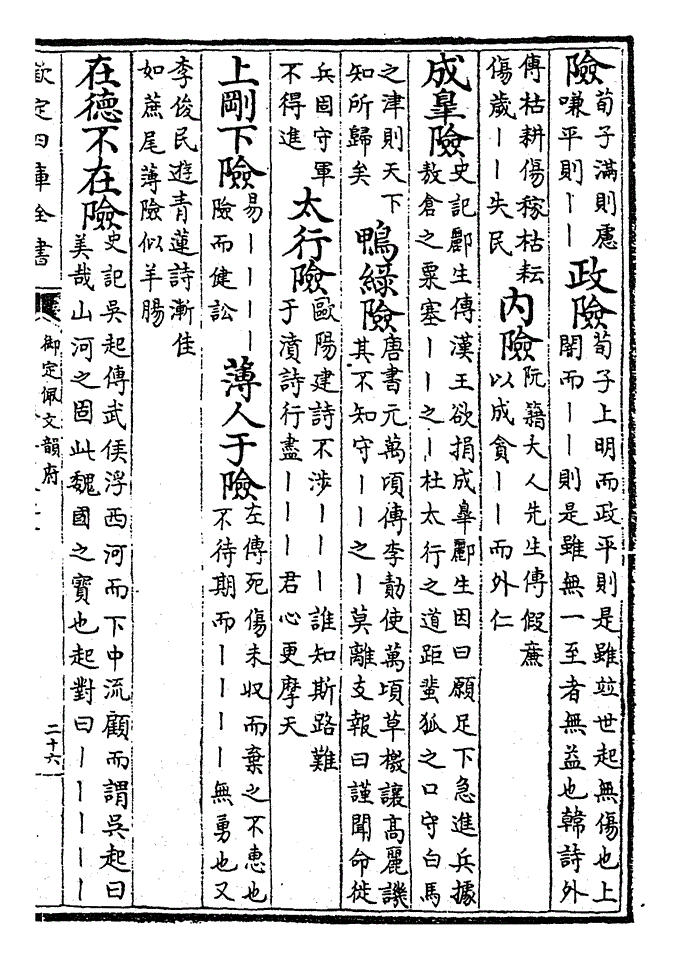 險
荀子滿則慮
嗛平則丨丨
政險
荀子上明而政平則是雖竝世起無傷也上
闇而丨丨則是雖無一至者無益也韓詩外
傳枯耕傷稼枯耘
傷歲丨丨失民
內險
阮籍大人先生傳假廉
以成貪丨丨而外仁
成皐險
史記酈生傳漢王欲捐成皐酈生因曰願足下急進兵據
敖倉之粟塞丨丨之丨杜太行之道距蜚狐之口守白馬
之津則天下
知所歸矣
鴨綠險
唐書元萬頃傳李勣使萬頃草檄讓高麗譏
其不知守丨丨之丨莫離支報曰謹聞命徙
兵固守軍
不得進
太行險
歐陽建詩不涉丨丨丨誰知斯路難
于濆詩行盡丨丨丨君心更摩天
上剛下險
易丨丨丨丨
險而健訟
薄人于險
左傳死傷未収而棄之不惠也
不待期而丨丨丨丨無勇也又
李俊民遊青蓮詩漸佳
如蔗尾薄險似羊腸
在德不在險
史記吳起傳武侯浮西河而下中流顧而謂吳起曰
美哉山河之固此魏國之寶也起對曰丨丨丨丨丨
欽定四庫全書
御定佩文韻府
二十六